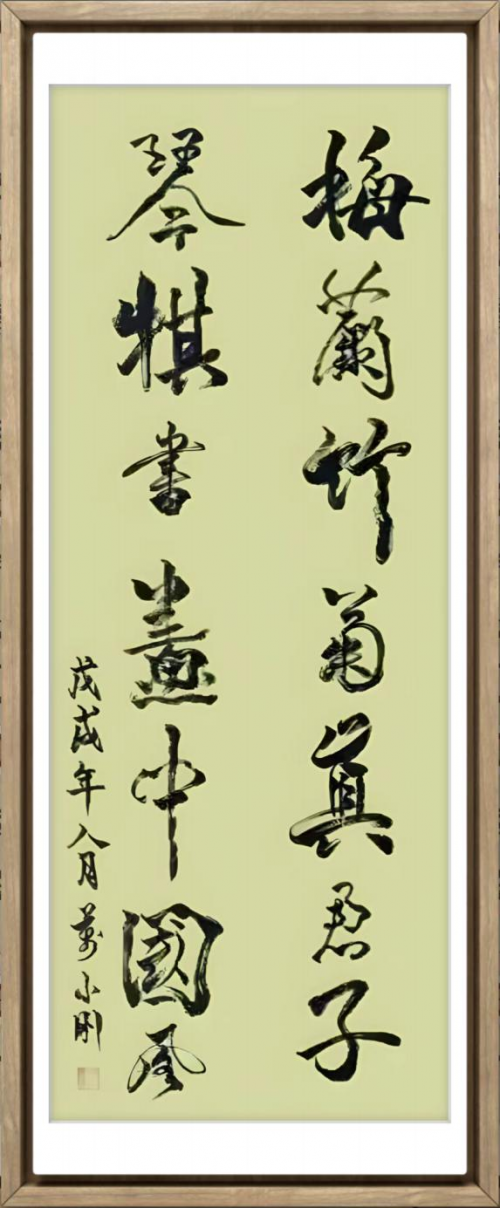 梅蘭竹菊真君子
琴棋書畫中國風
戊戌年八月萬小剛